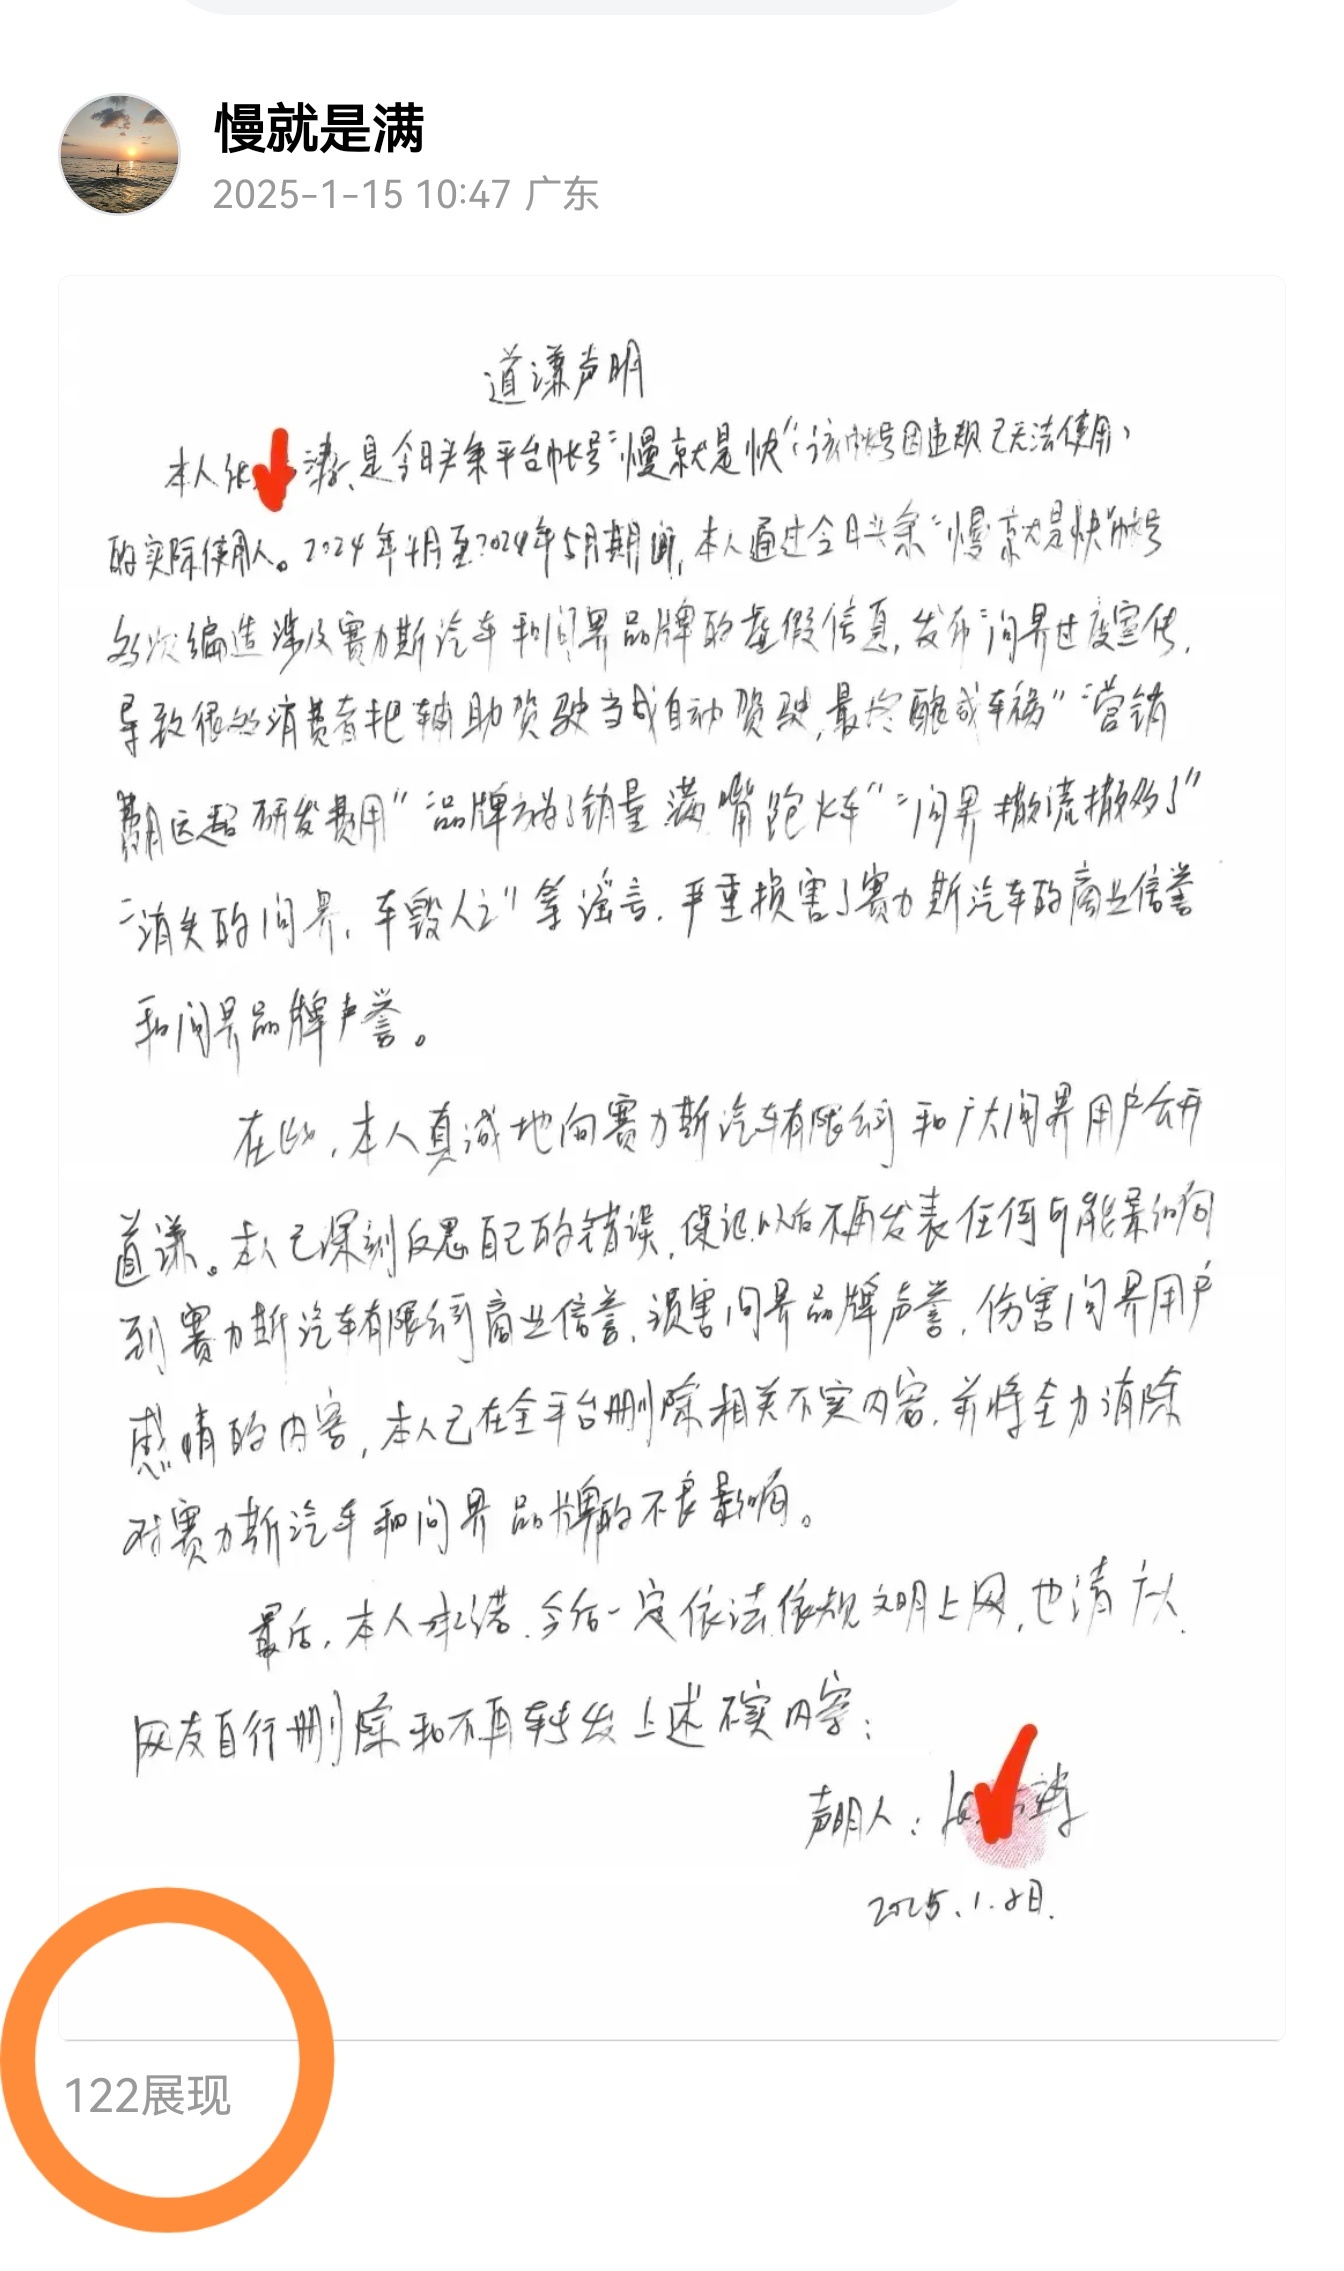 慢就是满
2025-1-15 10:47 广东
道谦声明
本人 是今日头条平台帐号“慢就是快”(该帐号因违规已无法使用)
的实际使用人。2024年4月至2024年5月期间,本人通过今日头条“慢就是快”帐号
多次编造涉及赛力斯汽车和问界品牌的虚假信息,发布“问界过度宣传,
导致很多消费者把辅助驾驶当成自动驾驶,最终酿成车祸”“营销
费用远超研发费用”“品牌方为了销量满嘴跑火车”“问界撤流撤多了”
“消失的问界、车毁人亡”等谣言,严重损害了赛力斯汽车的商业信誉
和问界品牌声誉。
在此,本人真诚地向赛力斯汽车有限公司和广大问界用户公开
道谦。本人已深刻反思自己的错误,保证以后不再发表任何可能影响
到赛力斯汽车有限公司商业信誉,损害问界品牌声誉,伤害问界用户
感情的内容,本人已在全平台删除相关不实内容,并将全力消除
对赛力斯汽车和问界品牌的不良影响。
最后,本人承诺,今后一定依法依规文明上网,也请广大
网友自行删除和不再转发上述不实内容;
声明人:
2025.1.8日.
122展现